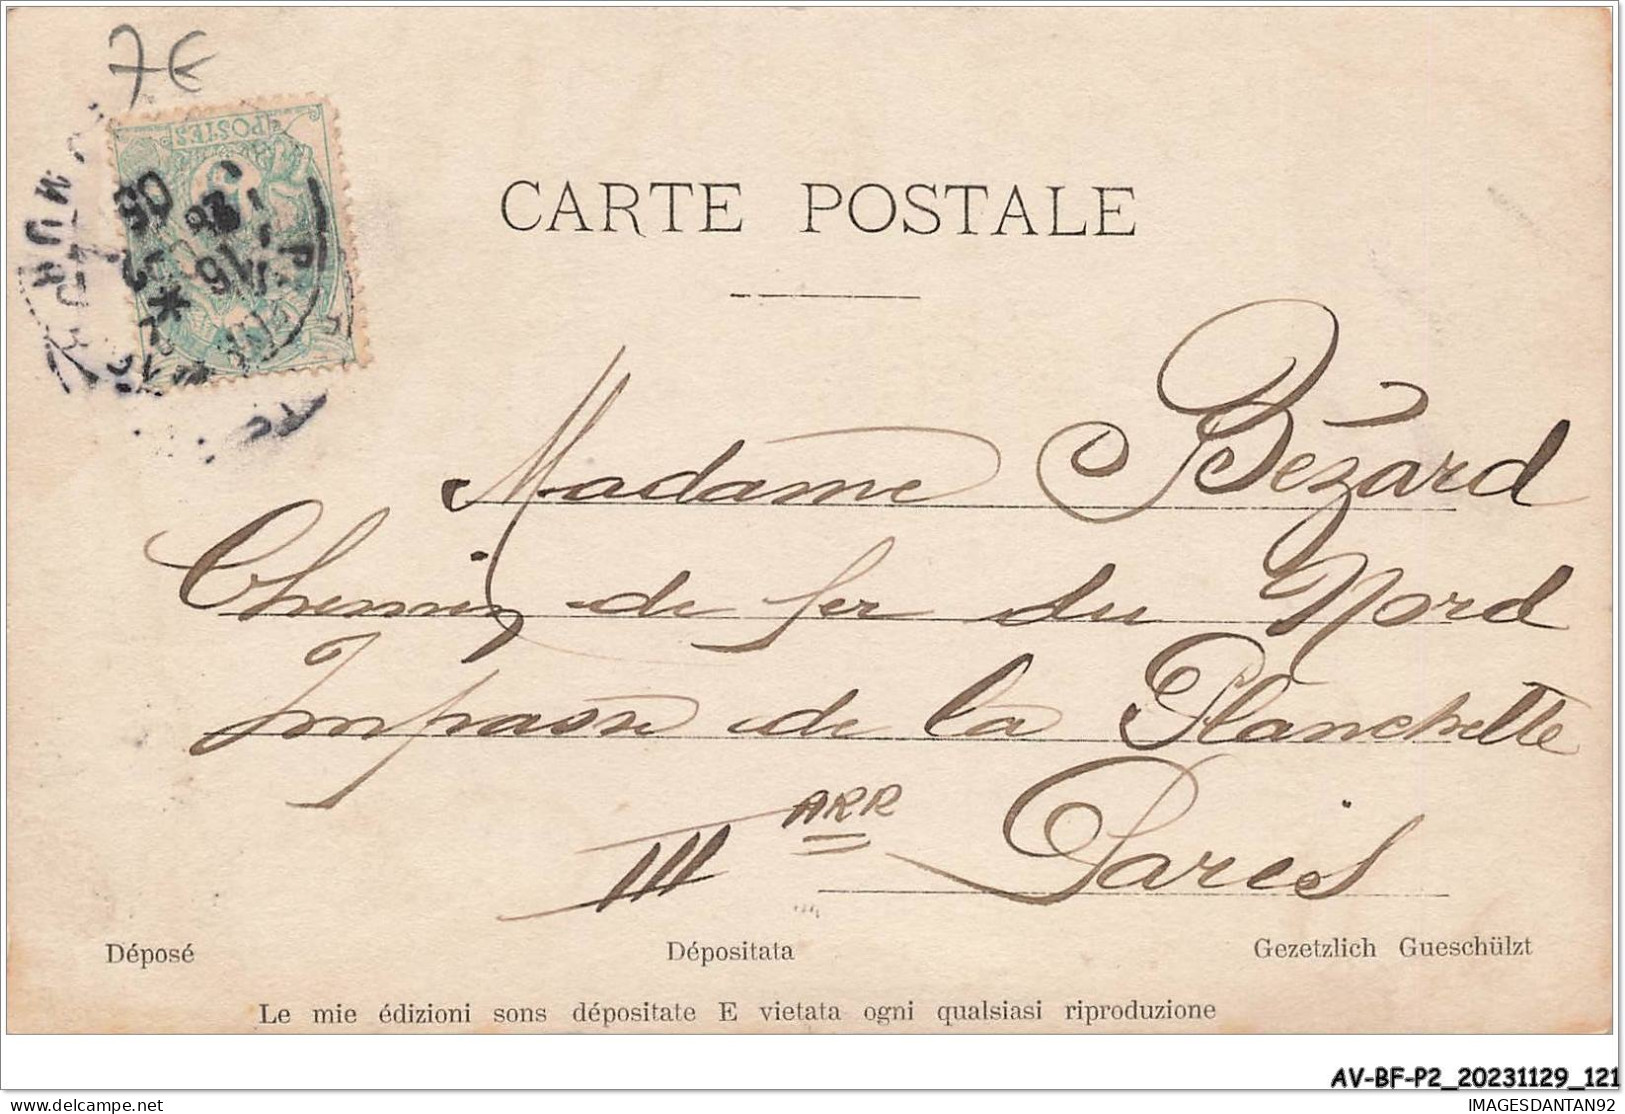 7€
POSTES
CARTE POSTALE
Madame Bézard
Chemin de fer du Nord
Impasse de la Planchette
III ARR Paris
Déposé Dépositata Gezetzlich Gueschülzt
Le mie édizioni sons dépositate E vietata ogni qualsiasi riproduzione
AV-BF-P2_20231129_121
delcampe.net
IMAGESDANTAN92